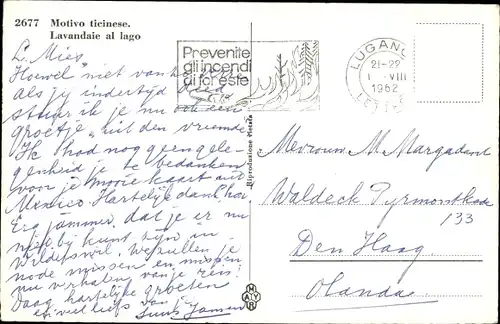 2677 Motivo ticinese.
Lavandaie al lago
L. Mies,
Hoewel "niet van
als jij indertijd deed
stuur ik je nu ook een
groetje "uit den vreemde"
Ik had nog geen gele-
genheid je te bedanken
voor je mooie kaart uit
Mexico. Hartelijk dank, hoor
Erg jammer, dat je er nu
niet bij kunt zijn in
Wilderswil. We zullen je
node missen en missen
nu verhalen van je reis!
Daag hartelijke groeten
en veel liefs van
Juus Jansen
Prevenite
gli incendi
di foreste
LUGANO
21-22
1 VIII
1962
LETTERE
Riproduzione vietata
MAYR
Mevrouw M. Margadant
Waldeck Pyrmontkade
133
Den Haag
Olanda